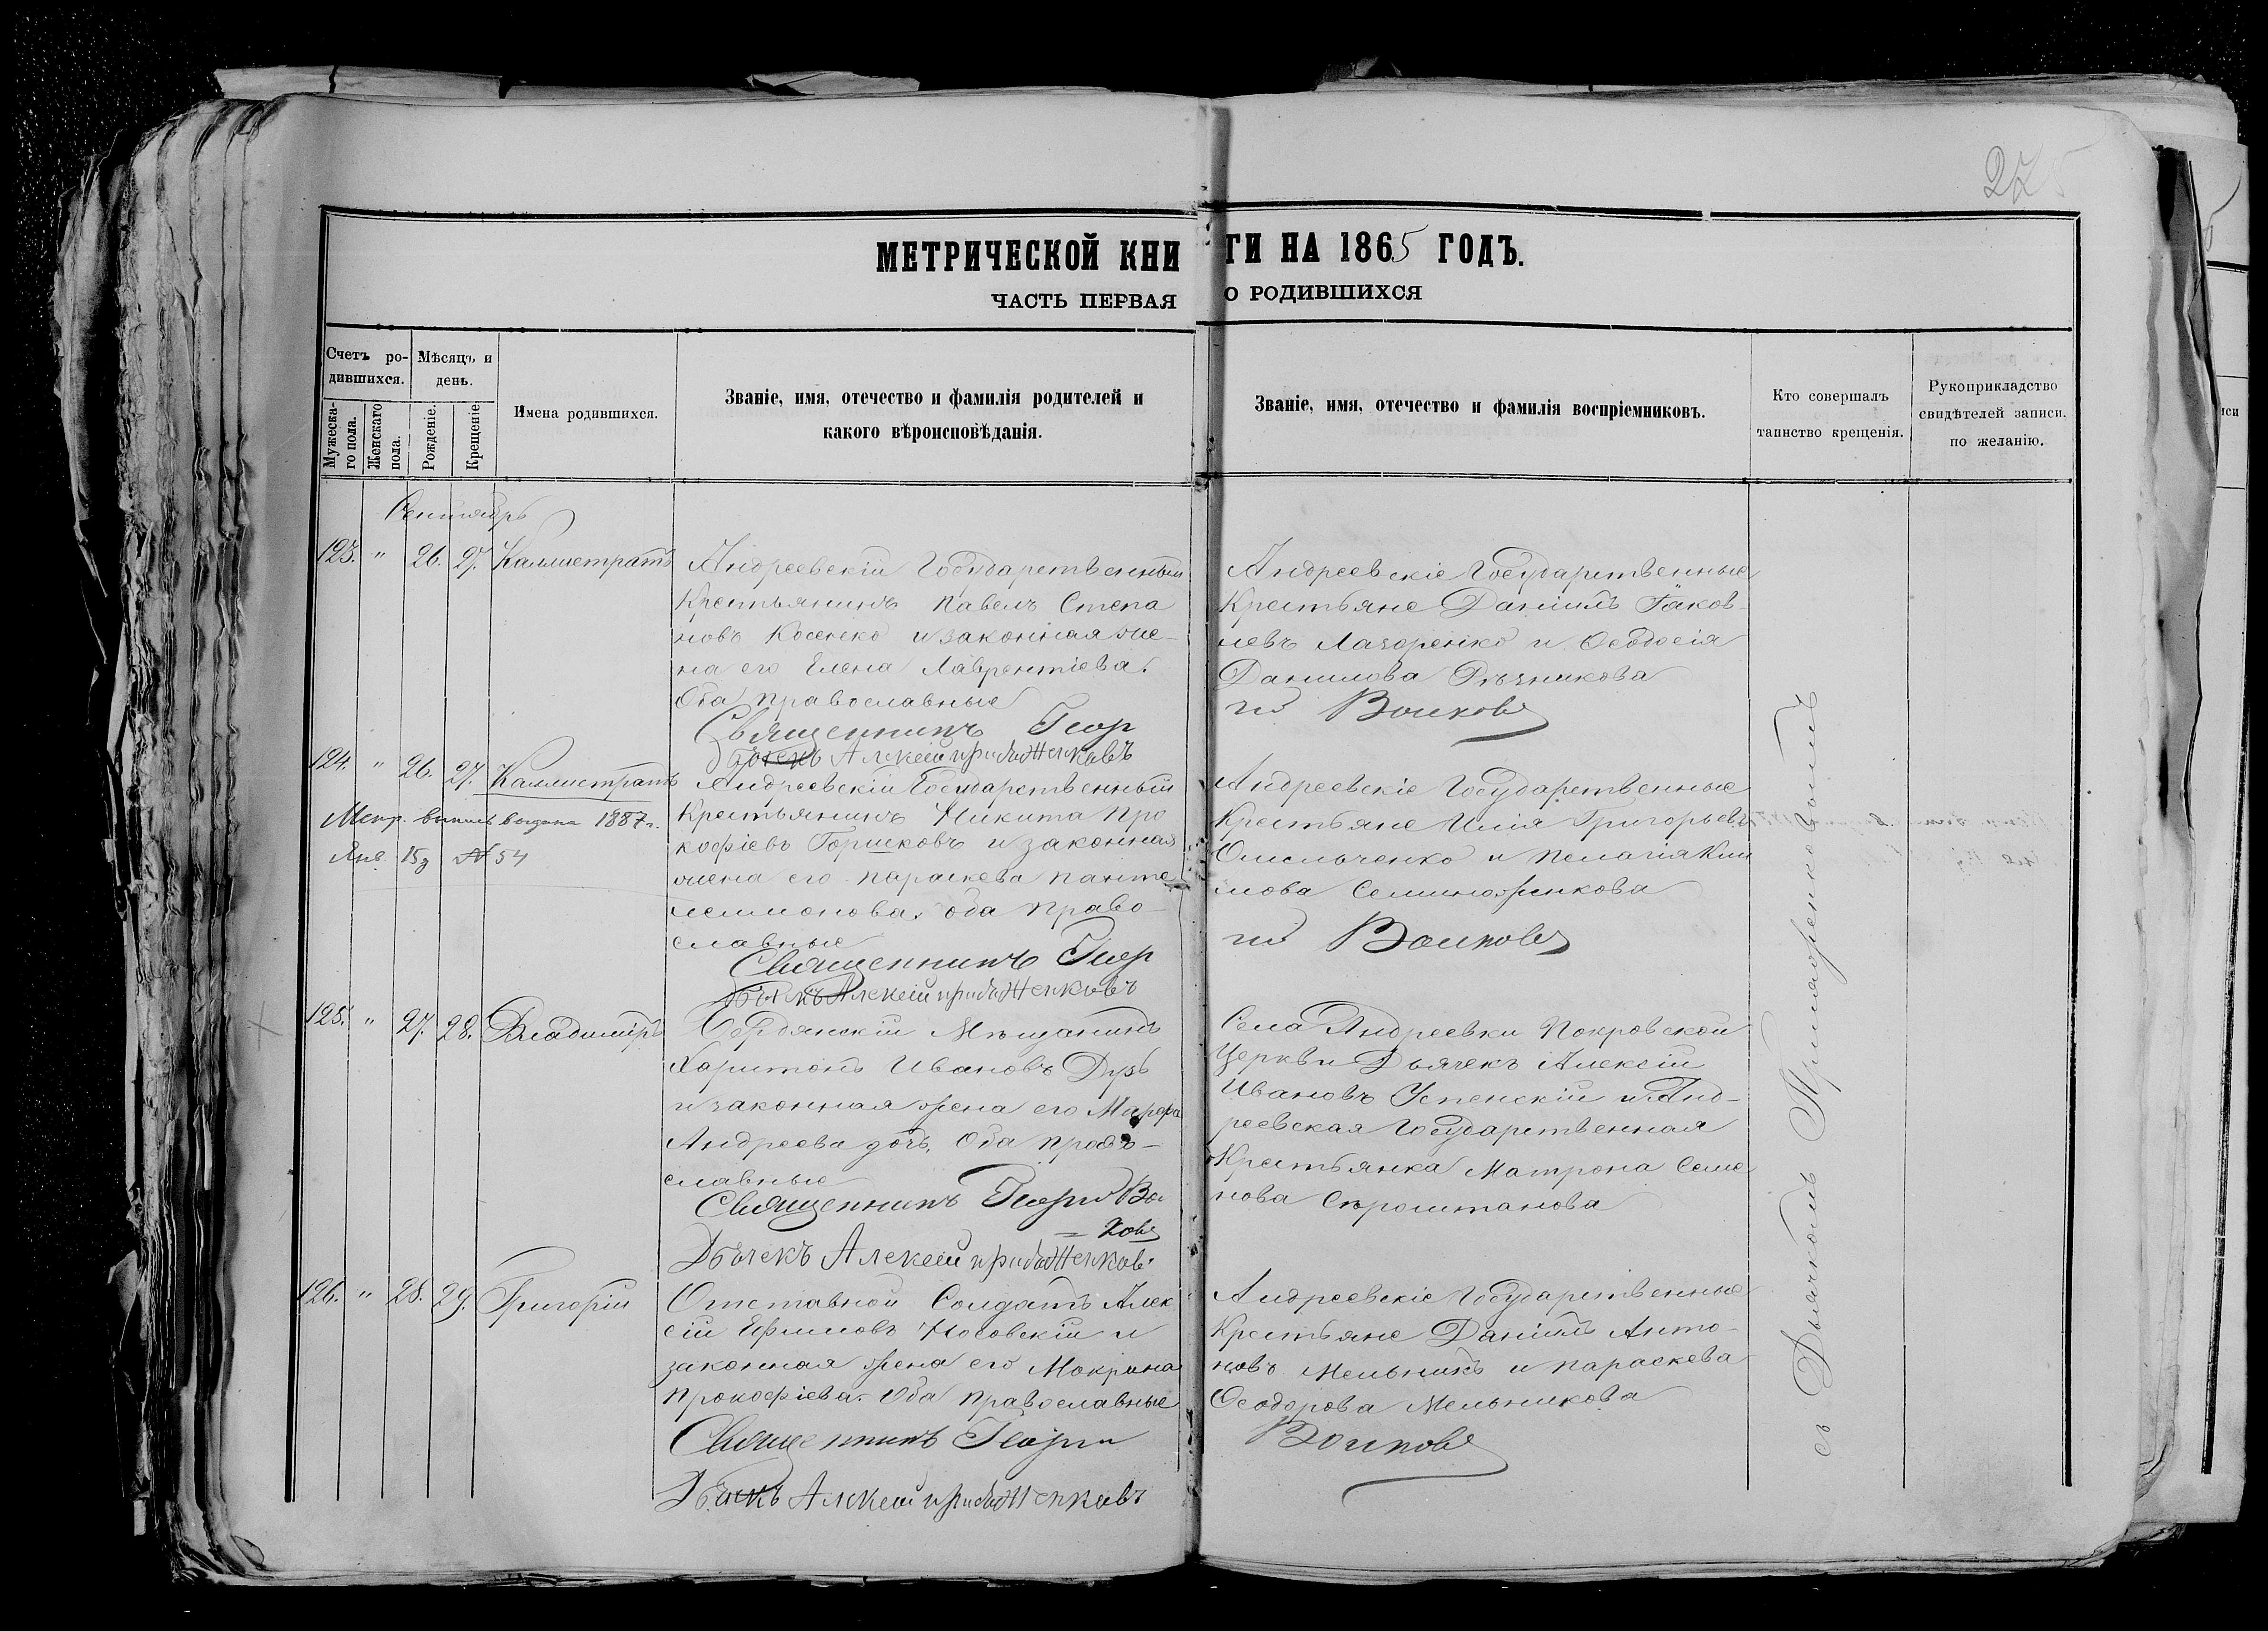 275
МЕТРИЧЕСКОЙ КНИГИ НА 1865 ГОДЪ.
ЧАСТЬ ПЕРВАЯ О РОДИВШИХСЯ
Счетъ ро-
дившихся.
Мужеска-
го пола.
Женскаго
пола.
Мѣсяцъ и
день.
Рожденіе.
Крещеніе
Имена родившихся.
Званіе, имя, отечество и фамилія родителей и
какого вѣроисповѣданія.
Званіе, имя, отечество и фамилія воспріемниковъ.
Кто совершалъ
таинство крещенія.
Рукоприкладство
свидѣтелей записи.
по желанію.
Сентябрь
123. " 26. 27. Каллистратъ
Андреевскій Государственный
Крестьянинъ Павелъ Степа
новъ Косенко и законная же-
на его Елена Лаврентіева.
Оба православные
Священникъ Геор
Алексій
Андреевскіе Государственные
Крестьяне Даніилъ Іаков-
левъ Лазоренко и Ѳеодосія
Данилова Рѣзникова
гій Волковъ
124. " 26. 27. Каллистратъ
Метр. выпись выдана 1887 г.
Янв. 15 д № 54
Андреевскій Государственный
Крестьянинъ Никита Про
кофіевъ Горшковъ и законная
жена его Параскева Панте
леимонова. Оба право-
славные
Священникъ Геор
Алексій
Андреевскіе Государственные
Крестьяне Илія Григорьевъ
Омельченко и Пелагія Кли
мова
гій Волковъ
125. " 27. 28. Владиміръ
Бердянскій Мѣщанинъ
Харитонъ Ивановъ Дузь
и законная жена его Марфа
Андреева дочь. Оба право-
славные
Священникъ Георгій Вол
= ковъ
Дьячекъ Алексій
Села Андреевки Покровской
Церкви Дьячекъ Алексій
Ивановъ Успенскій и Анд-
реевская Государственная
Крестьянка Матрона Семе
нова
126. " 28. 29. Григорій
Отставной Солдатъ Алек
сій Ефимовъ Носовскій и
законная жена его Макрина
Прокофіева. Оба православные
Священникъ Георгій
Дьячекъ Алексій
Андреевскіе Государственные
Крестьяне Даніилъ Анто-
новъ Мельникъ и Параскева
Ѳеодорова Мельникова
Волковъ
съ Дьячкомъ